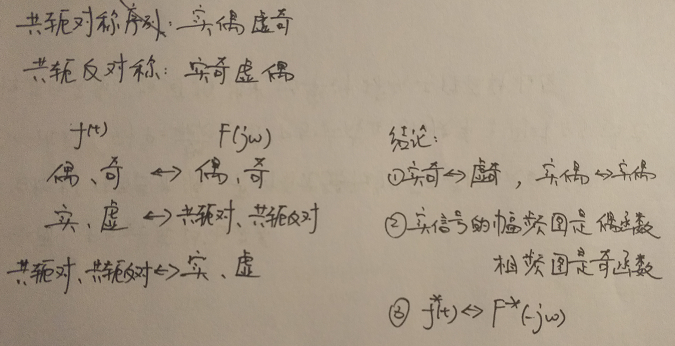 共轭对称序列: 实偶虚奇
共轭反对称: 实奇虚偶
f(t) F(jω)
偶、奇 ↔ 偶、奇
实、虚 ↔ 共轭对、共轭反对
共轭对、共轭反对 ↔ 实、虚
结论:
①实奇↔虚奇, 实偶↔实偶
②实信号的幅频图是偶函数
相频图是奇函数
③ f*(t) ↔ F*(-jω)